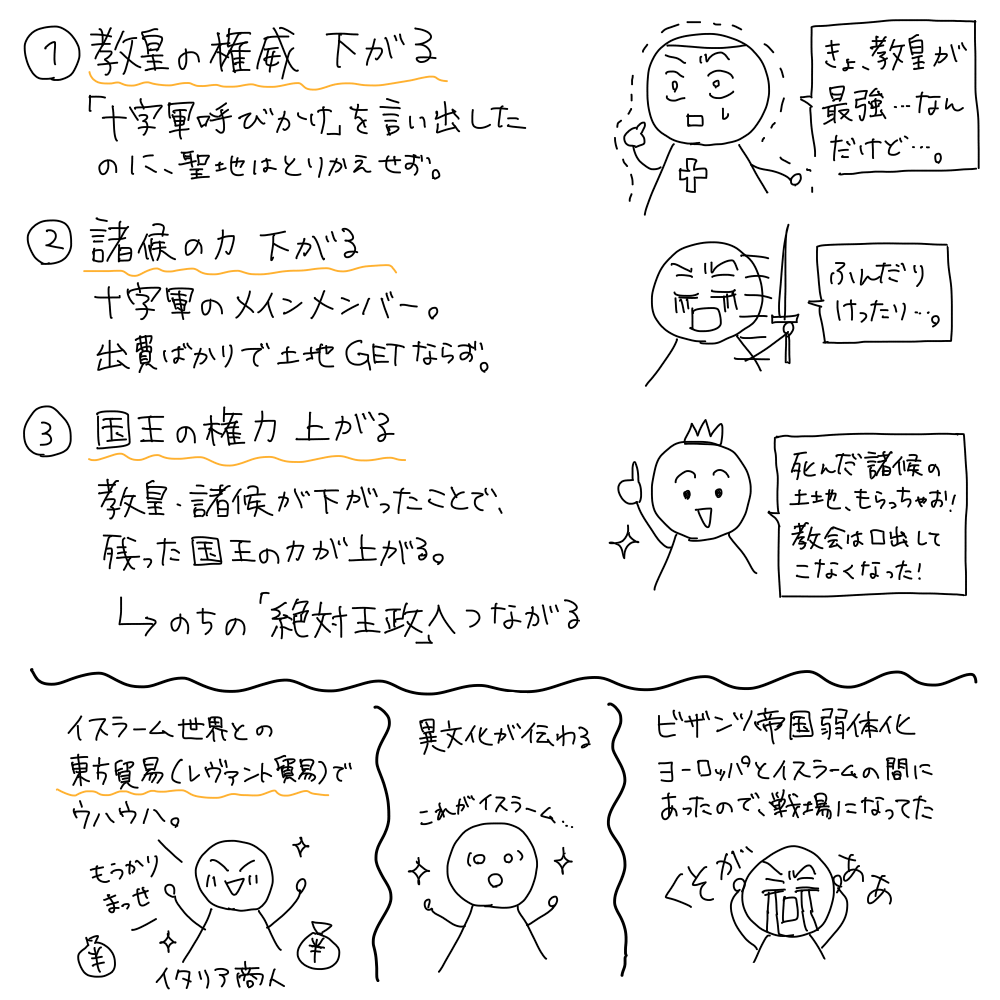 ① 教皇の権威 下がる
「十字軍呼びかけ」を言い出した
のに、聖地はとりかえせず。
きょ、教皇が
最強…なん
だけど…。
② 諸候の力 下がる
十字軍のメインメンバー。
出費ばかりで土地GETならず。
ふんだり
けったり…。
③ 国王の権力 上がる
教皇・諸候が下がったことで、
残った国王の力が上がる。
↳のちの「絶対王政」へつながる
死んだ諸候の
土地、もらっちゃお!
教会は口出して
こなくなった!
イスラーム世界との
東方貿易(レヴァント貿易)で
ウハウハ。
もうかり
まっせ
¥
¥
イタリア商人
異文化が伝わる
これがイスラーム…
ビザンツ帝国弱体化
ヨーロッパとイスラームの間に
あったので、戦場になってた
くそがああ